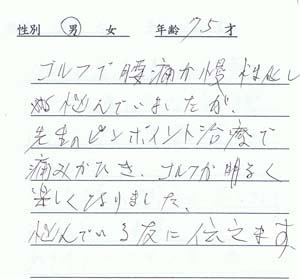 性別 男 女 年齢 75才
ゴルフで腰痛が慢性化し
悩んでいましたが、
先生のピンポイント治療で
痛みがひき、ゴルフが明るく
楽しくなりました、
悩んでいる友に伝えます